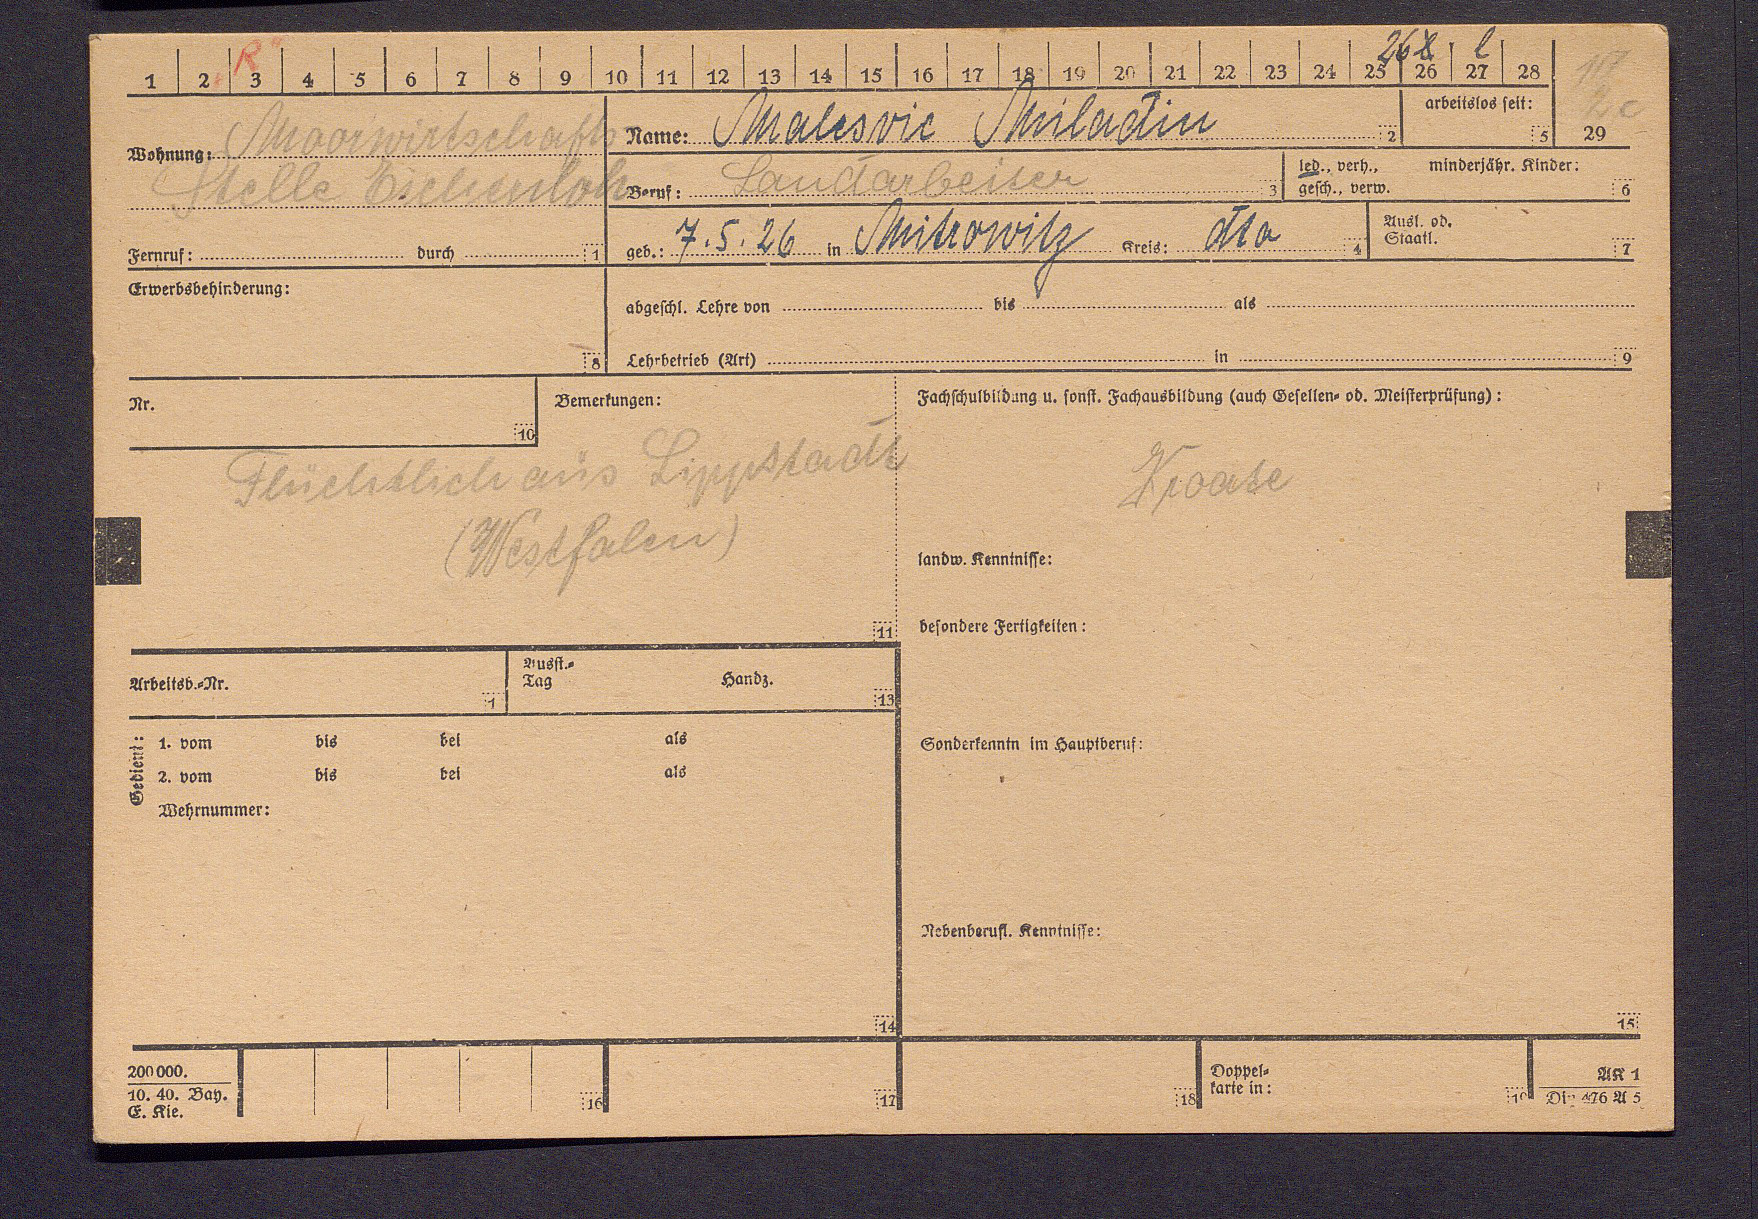 R
26 X l
1 2 3 4 5 6 7 8 9 10 11 12 13 14 15 16 17 18 19 20 21 22 23 24 25 26 27 28
Wohnung: Moorwirtschafts
Stelle Eichenloh
Fernruf: durch 1
Name: Malesvic Miladin 2
arbeitslos seit: 5
29
Beruf: Landarbeiter 3
led., verh.,
gesch., verw.
minderjähr. Kinder: 6
geb.: 7.5.26 in Mitrowitz Kreis: dto 4
Ausl. od.
Staatl. 7
Erwerbsbehinderung: 8
abgeschl. Lehre von bis als
Lehrbetrieb (Art) in 9
Nr. 10
Bemerkungen:
Flüchtlich aus Lippstadt
(Westfalen)
11
Fachschulbildung u. sonst. Fachausbildung (auch Gesellen- od. Meisterprüfung):
Kroate
landw. Kenntnisse:
besondere Fertigkeiten:
Arbeitsb.-Nr. 1
Ausst.-
Tag Handz. 13
Gedient:
1. vom bis bei als
2. vom bis bei als
Wehrnummer:
14
Sonderkenntn im Hauptberuf:
Nebenberufl. Kenntnisse:
15
200000.
10. 40. Bay.
E. Kie.
16
17
18
Doppel-
karte in: 19
AK 1
Din 476 A 5